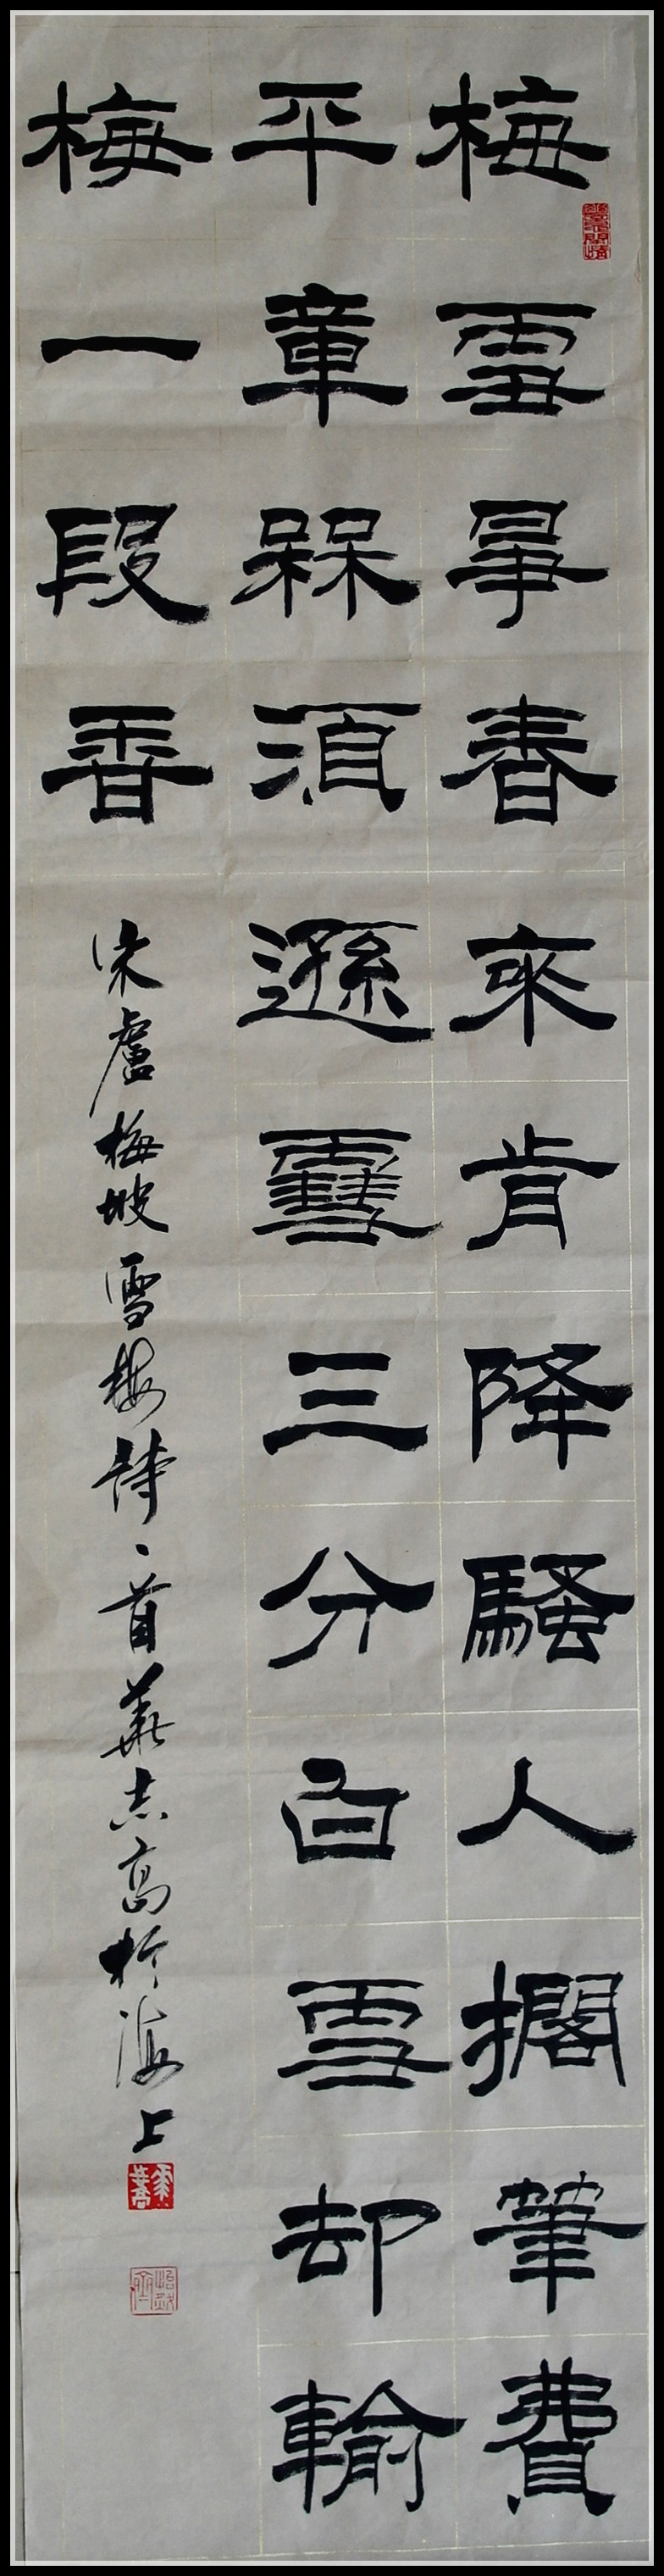 梅雪爭春來肯降騷人擱筆費
平章槑須遜䨮三分白雪却輸
梅一段香
宋盧梅坡雪梅詩一首葉志高於海上